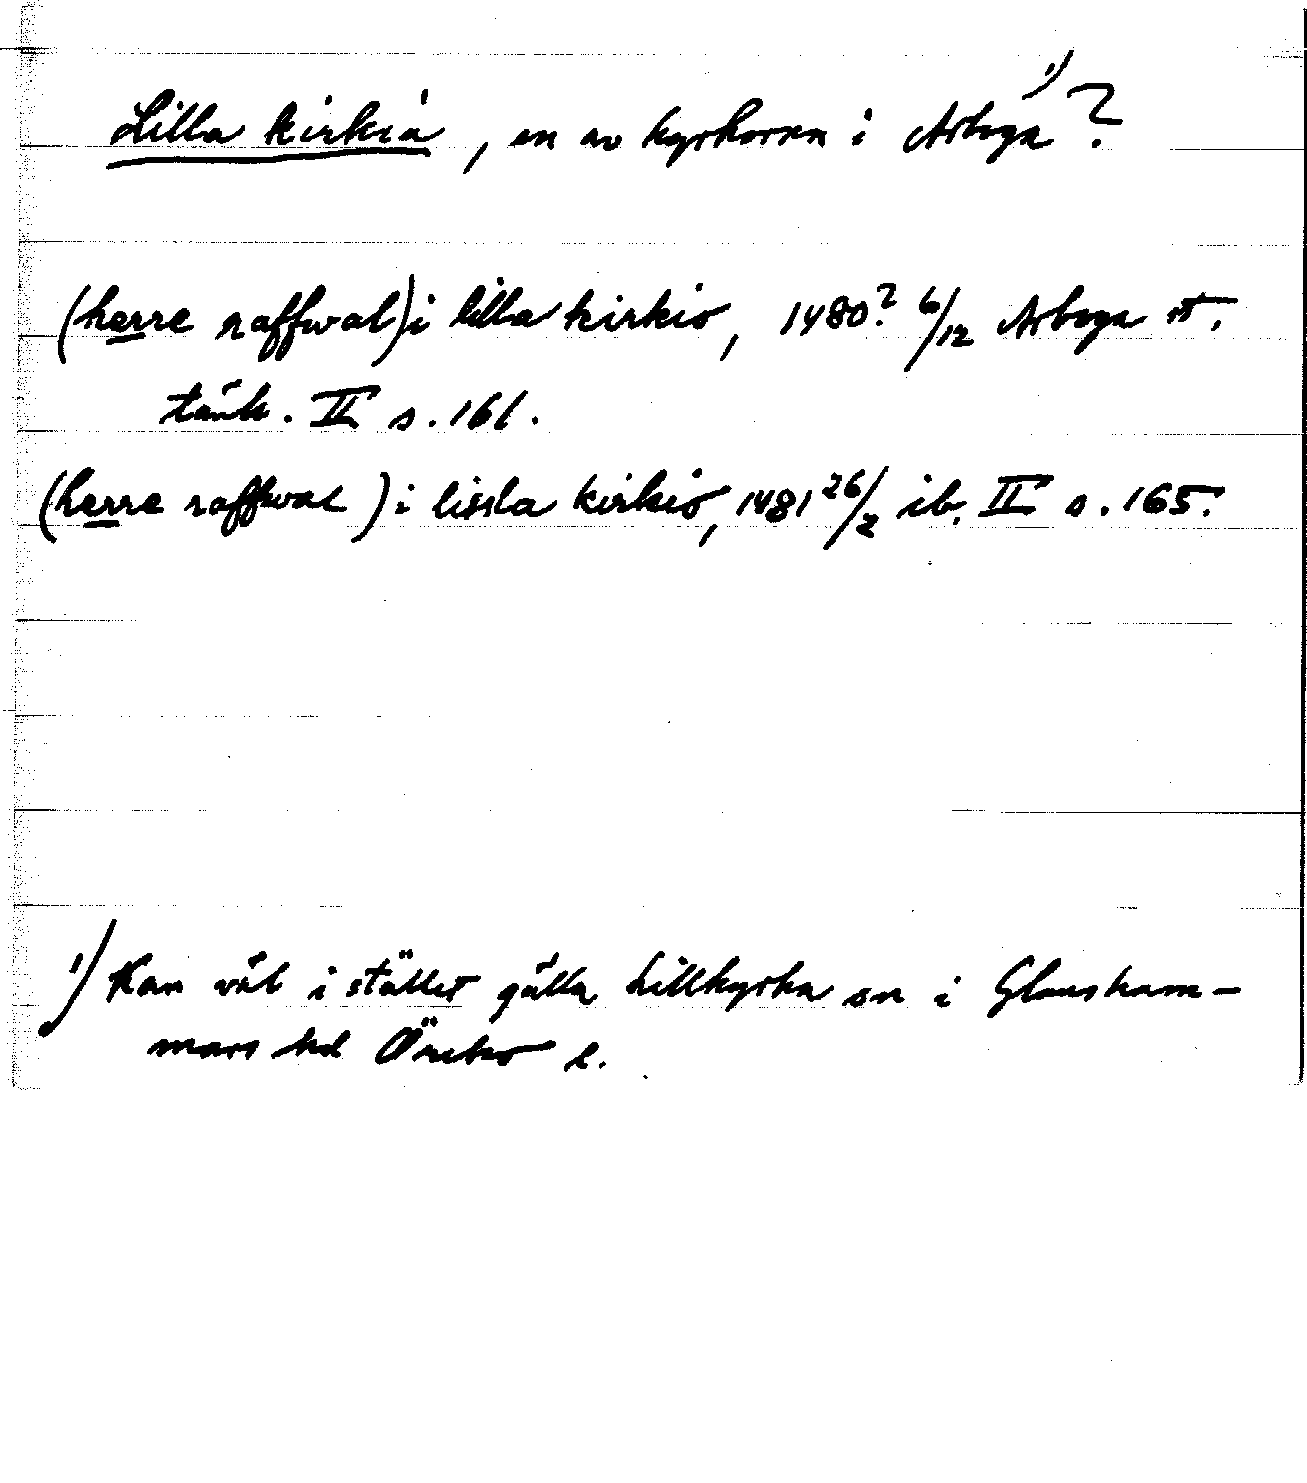 Lilla kirkia, en av kyrkorna i Arboga ¹⁾?
(herre raffwal) i lilla kirkio, 1480? 6/12 Arboga st.
tänk. II s. 161.
(herre raffwal) i lissla kirkio, 1481 26/2 ib. II s. 165.
¹⁾ Kan väl i stället gälla Lillkyrka sn i Glansham-
mars hd Örebro l.